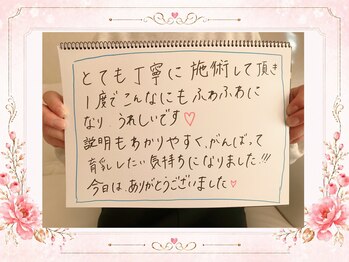 とても丁寧に施術して頂き
1度でこんなにもふわふわに
なり うれしいです♡
説明もわかりやすく、がんばって
育乳したい気持ちになりました!!!
今日は、ありがとうございました♡